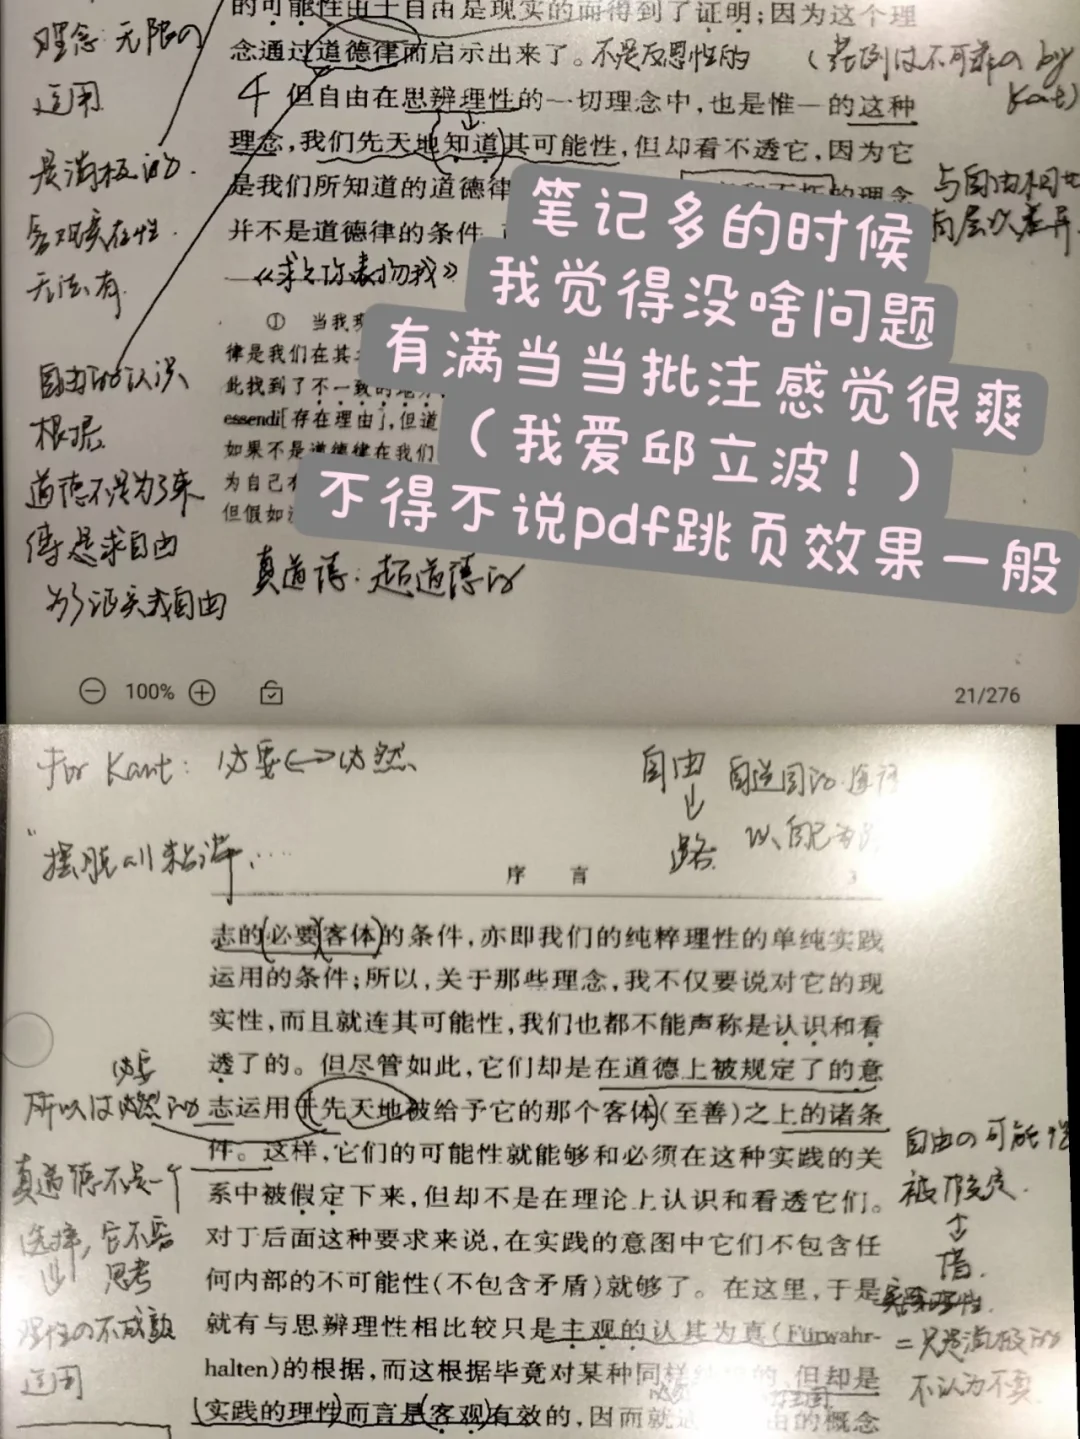 的可能性由于自由是现实的而得到了证明；因为这个理
理念：无限の
念通过道德律而启示出来了。不是反思性的
运用
但自由在思辨理性的一切理念中，也是惟一的这种
Kant)
理念，我们先天地知道其可能性，但却看不透它，因为它
是消极的.
是我们所知道的道德律
的理念
与自由相比
有层次差异.
客观实在性.
并不是道德律的条件，
无法有.
笔记多的时候
我觉得没啥问题
有满当当批注感觉很爽
（我爱邱立波！）
不得不说pdf跳页效果一般
① 当我现
律是我们在其
自由的认识
此找到了不一致的地方，
根据.
essendi[存在理由]，但道
如果不是道德律在我们
为自己有
但假如没
是求自由
为了证实我自由
真道德：超道德的
100%
21/276
For Kant: 必要↔必然
自由
↓
路
以自己为
序 言
3
志的(必要)(客体)的条件，亦即我们的纯粹理性的单纯实践
运用的条件；所以，关于那些理念，我不仅要说对它的现
实性，而且就连其可能性，我们也都不能声称是认识和看
透了的。但尽管如此，它们却是在道德上被规定了的意
必要
所以是必然的
志运用于先天地被给予它的那个客体(至善)之上的诸条
件。这样，它们的可能性就能够和必须在这种实践的关
自由の可能性
真道德不是一个
系中被假定下来，但却不是在理论上认识和看透它们。
被假定.
选择，它不需
思考
对于后面这种要求来说，在实践的意图中它们不包含任
何内部的不可能性(不包含矛盾)就够了。在这里，于是
借.
实践理性.
理性の不成熟
运用
就有与思辨理性相比较只是主观的认其为真(Fürwahr-
=只是消极的
halten)的根据，而这根据毕竟对某种同样纯粹的，但却是
不认为不真.
实践的理性而言是(客观)有效的，因而就
由的概念